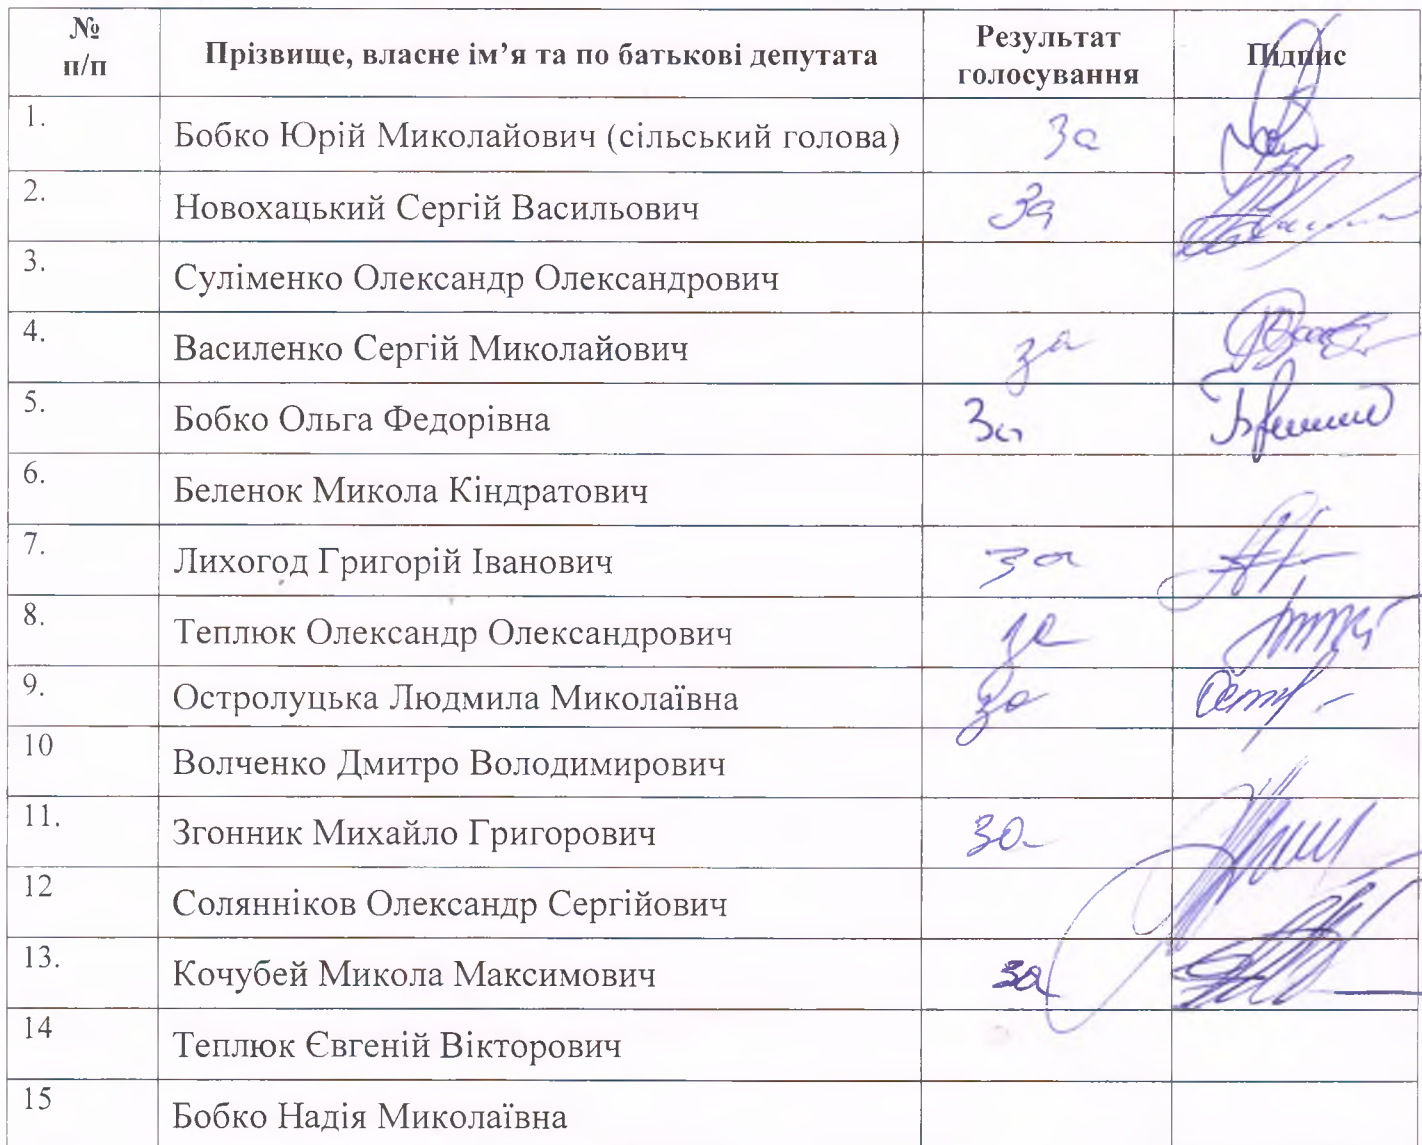 № п/п Прізвище, власне ім’я та по батькові депутата Результат голосування Підпис
1. Бобко Юрій Миколайович (сільський голова) За
2. Новохацький Сергій Васильович За
3. Суліменко Олександр Олександрович
4. Василенко Сергій Миколайович за
5. Бобко Ольга Федорівна За
6. Беленок Микола Кіндратович
7. Лихогод Григорій Іванович за
8. Теплюк Олександр Олександрович за
9. Остролуцька Людмила Миколаївна за
10 Волченко Дмитро Володимирович
11. Згонник Михайло Григорович за
12 Солянніков Олександр Сергійович
13. Кочубей Микола Максимович за
14 Теплюк Євгеній Вікторович
15 Бобко Надія Миколаївна